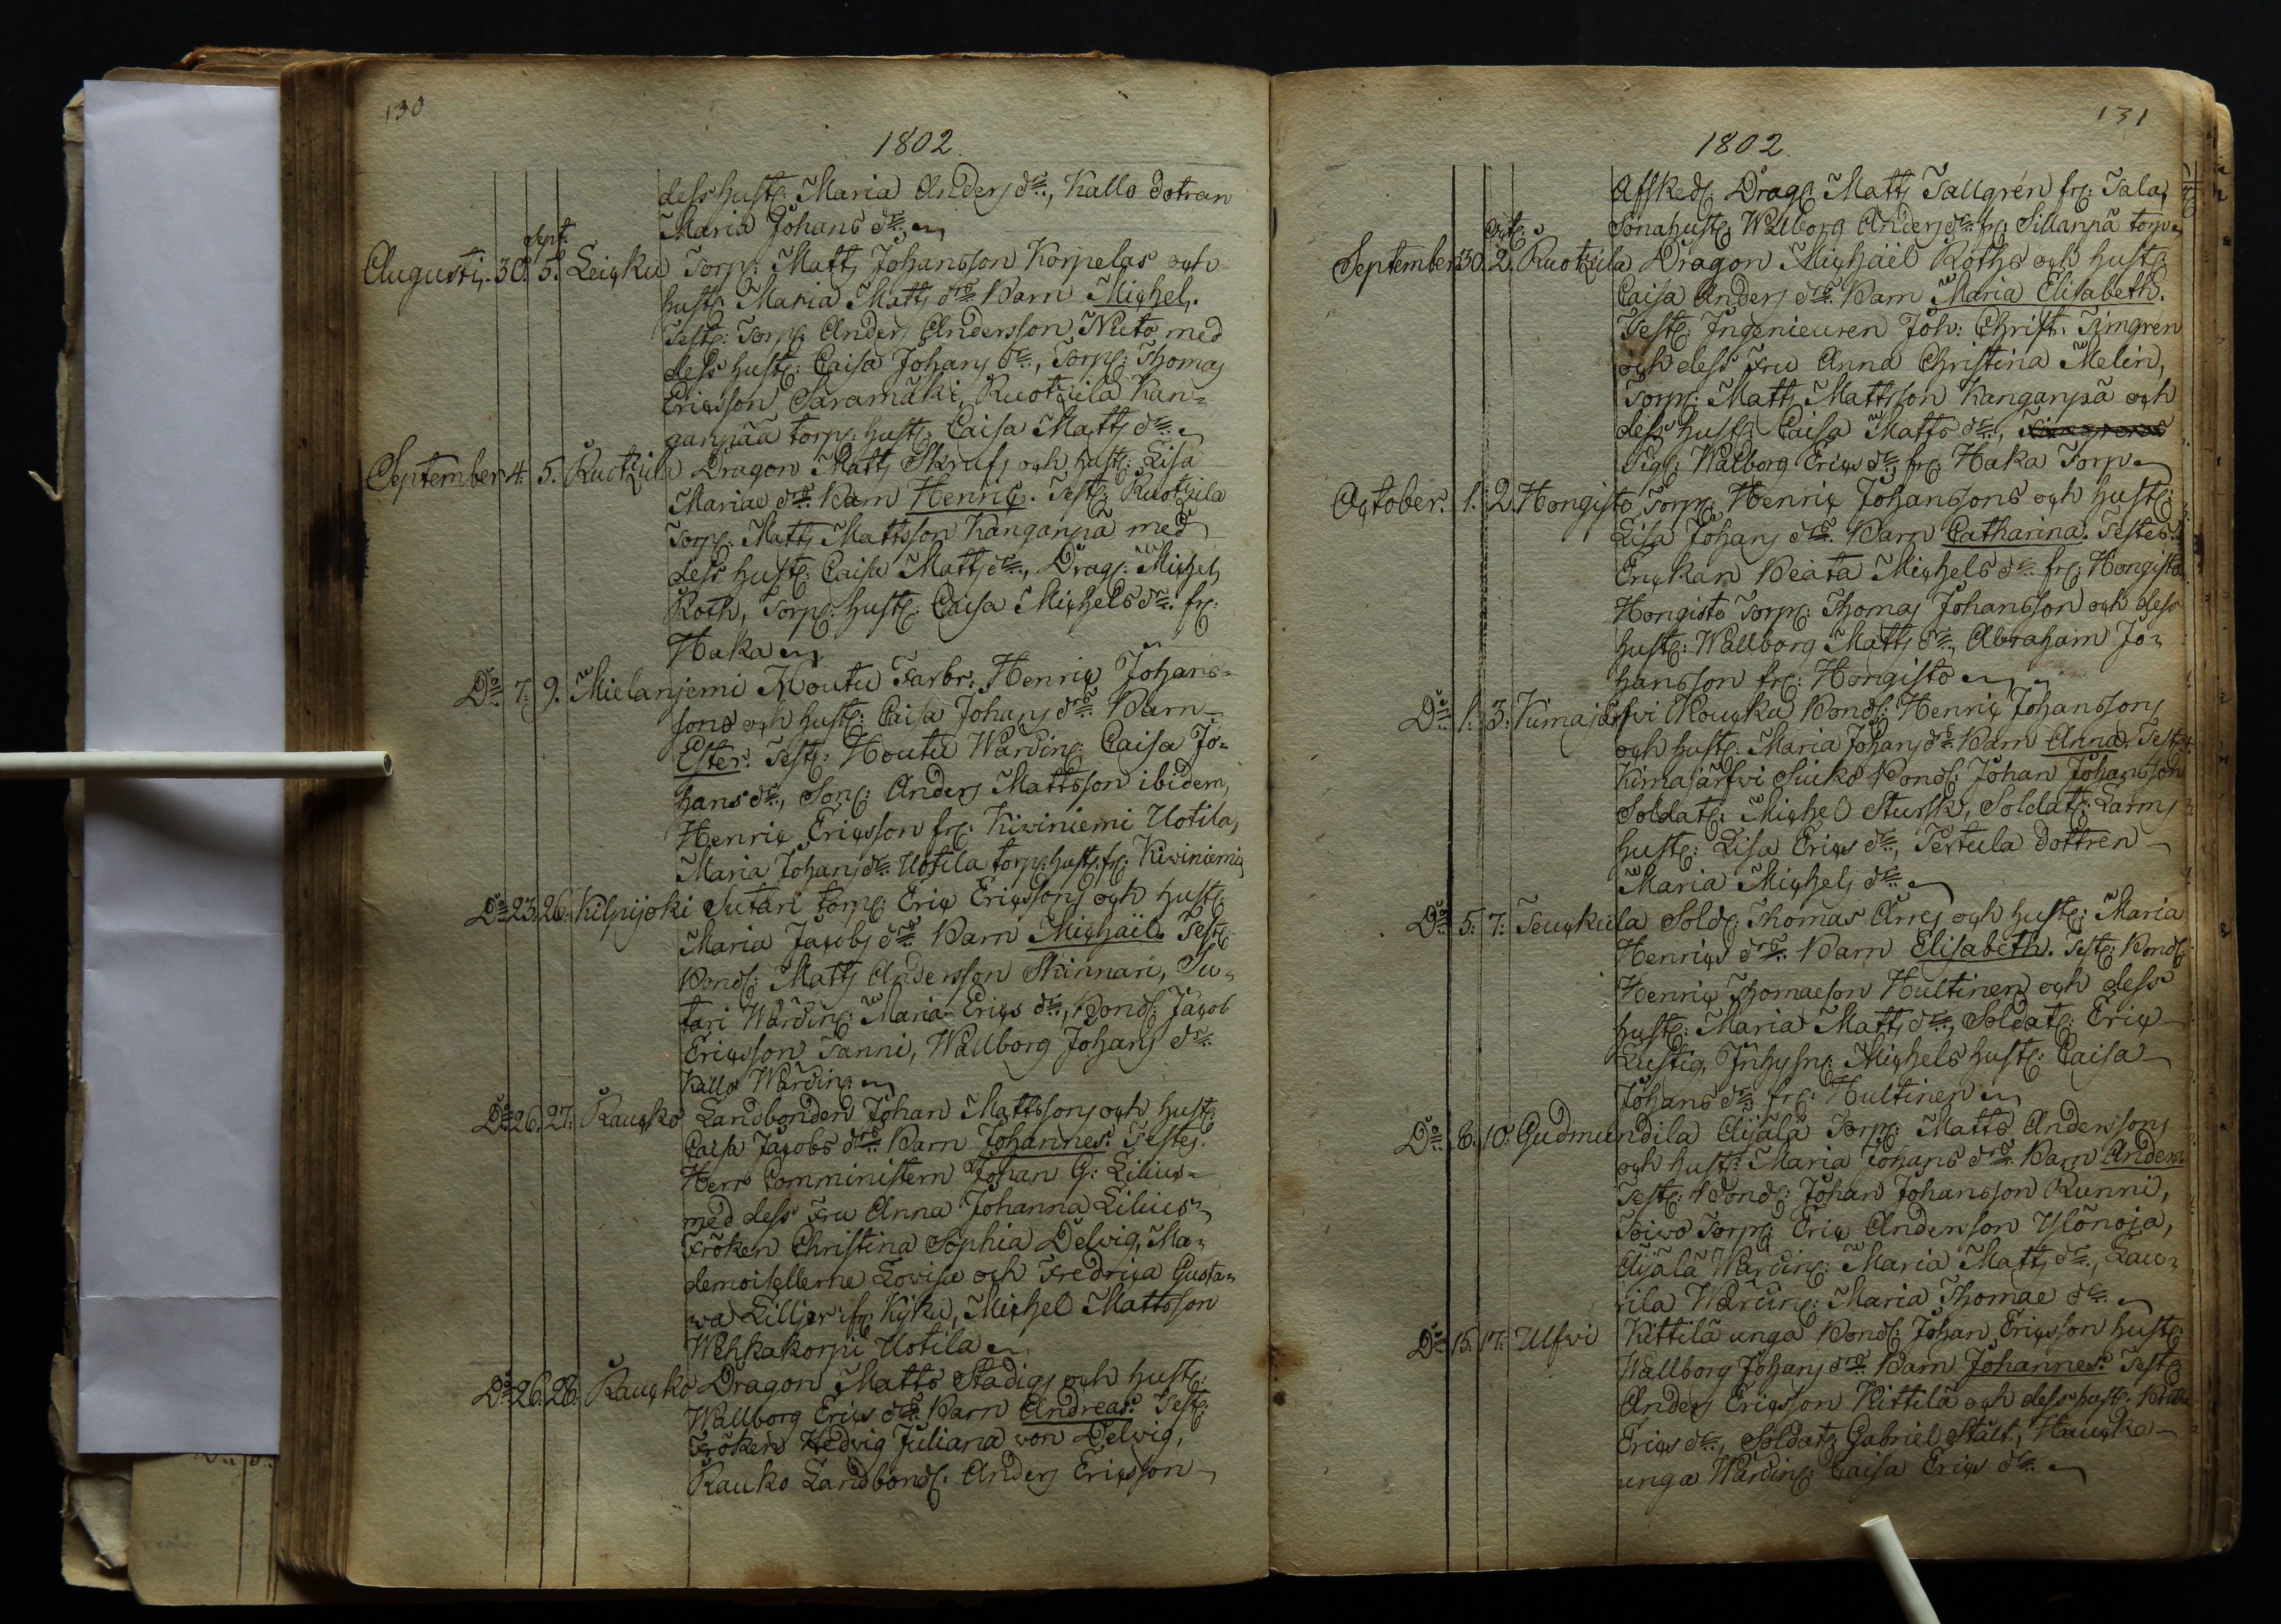 130
1802.
dess hust: Maria Anders dr., Kallo dotran
Maria Johans dr.
Sept.
Augusti. 30. 5. Leicku Torp: Matts Johansson Korpelas och
hust: Maria Matts drs. Barn Michel.
Test: Torp: Anders Andersson Nieto med
dess hust: Caisa Johans dr., Torp: Thomas
Ericsson Saramäki, Ruotzila Kan-
ganpää torp: hust: Caisa Matts dr.
September 4. 5. Ruotzila Dragon Matts Skrufs och hust: Lisa
Mariae drs. Barn Henric. Test: Ruotzila
Torp: Matts Mattsson Kanganpä med
dess hust: Caisa Matts dr., Drag: Michel
Roth, Torp: hust: Caisa Michels dr. fr:
Haka
Do. 7. 9. Mielanjemi Noutu Farbr: Henric Johans-
sons och hust: Caisa Johans drs. Barn
Ester. Test: Houtu Wärdin: Caisa Jo-
hans dr., Son: Anders Mattsson ibidem,
Henric Ericsson fr: Kiviniemi Uotila,
Maria Johans dr. Uotila torp: hust: fr: Kiviniemi
Do. 23. 26. Kilpijoki Sutari torp: Eric Ericssons och hust:
Maria Jacobs drs. Barn Michäil. Test:
Bond: Matts Andersson Skinnari, Su-
tari Wärdin: Maria Erics dr., Bond: Jacob
Ericsson Tanni, Wallborg Johans dr.
Kallo Wärdin:
Do. 26. 27. Raucko Landbonden Johan Mattssons och hust:
Caisa Jacobs drs. Barn Johannes. Testes.
Herr Comministern Johan G: Lilius
med dess Fru Anna Johanna Lilius,
Fröken Christina Sophia Delvig, Ma-
demoisellerne Lovisa och Fredrica Gusta-
wa Lilljer: fr: Kyku, Michel Mattsson
Wehkakorpi Uotila
Do. 26. 28. Raucko Dragon Matts Stadigs och hust:
Wallborg Erics drs. Barn Andreas. Test:
Fröken Hedvig Juliana von Delvig,
Rauko Landbond: Anders Ericsson
131
1802.
Afsked: Drag: Matts Tallgren fr: Tala,
Sonahust: Wallborg Anders dr. fr: Sillanpä torp
Oct:
September 30. 2. Ruotzila Dragon Michäel Roths och hust:
Caisa Anders drs. Barn Maria Elisabeth.
Test: Ingenieuren Joh: Christ: Timgren
och dess Fru Anna Christina Melin,
Torp: Matts Mattsson Kanganpä och
dess hust: Caisa Matts dr.,
Pig: Walborg Erics dr. fr: Haka Torp
October. 1. 2. Hongisto Torp: Henric Johanssons och hust:
Lisa Johans drs. Barn Catharina. Testes.
Enckan Beata Michels dr. fr: Hongisto
Hongisto Torp: Thomas Johansson och dess
hust: Wallborg Matts dr., Abraham Jo-
hansson fr: Hongisto
Do. 1. 3. Kimajärfvi Koucku Bond: Henric Johanssons
och hust: Maria Johans drs. Barn Anna. Test:
Kimajärfvi Siuko Bond: Johan Johansson
Soldat: Michel Stursk, Soldat: Larms
hust: Lisa Erics dr., Pertula dottren
Maria Michels dr.
Do. 5. 7. Teuckula Sold: Thomas Ärres och hust: Maria
Henrics drs. Barn Elisabeth. Test: Bond:
Henric Thomaeson Hultinen och dess
hust: Maria Matts dr., Soldat: Eric
Lustig, Inhysn: Michels hust: Caisa
Johans dr. fr: Hultinen
Do. 8. 10. Gudmundila Äijälä Torp: Matts Anderssons
och hust: Maria Johans drs. Barn Anders.
Test: Bond: Johan Johansson Kunni,
Toivo Torp: Eric Andersson Ylönoja,
Äijälä Wärdin: Maria Matts dr., Lau-
rila Wärdin: Maria Thomae dr.
Do. 15. 17. Ulfvi Kittilä unga Bond: Johan Ericsson hust:
Wallborg Johans drs. Barn Johannes. Test:
Anders Ericsson Kittilä och dess hust:
Erics dr., Soldat: Gabriel Stält, Haucka
unga Wärdin: Caisa Erics dr.